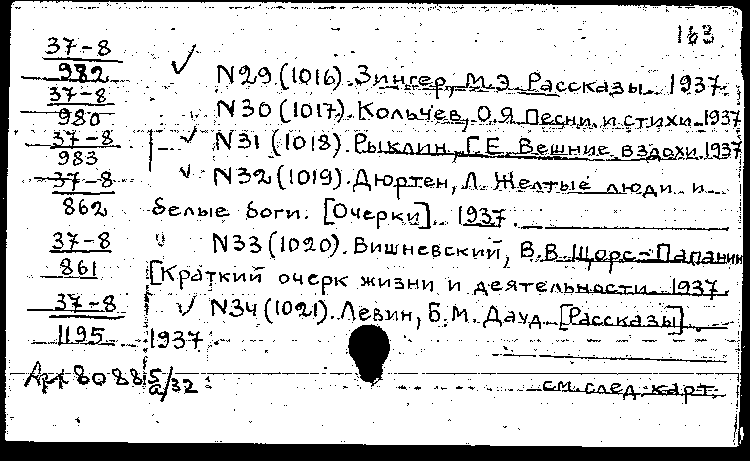 163
37-8
982 ✓ N29 (1016). Зингер, М.Э. Рассказы. 1937.
37-8
980 N30 (1017). Кольчев, О.Я. Песни и стихи. 1937
37-8
983 ✓ N31 (1018). Рыклин, Г.Е. Вешние вздохи. 1937
37-8
862 ✓ N32 (1019). Дюртен, Л. Желтые люди и
белые боги. [Очерки]. 1937.
37-8
861 N33 (1020). Вишневский, В.В. Щорс-Папанин
[Краткий очерк жизни и деятельности. 1937.
37-8
1195 ✓ N34 (1021). Левин, Б.М. Дауд. [Рассказы].
1937.
8088 5а/32
см. след. карт.